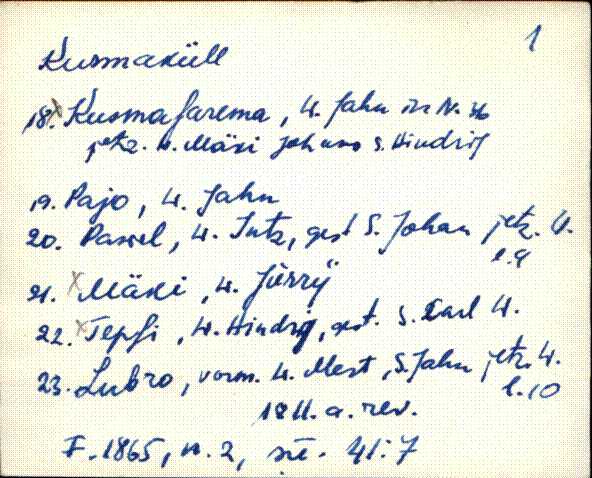 1
Kusmaküll
18. x Kusmajarema, W. Jahn in N. 36
jetz. W. Mäxi Johans S. Hindrif
19. Pajo, W. Jahn
20. Pawel, W. Jutz, gest S. Johan jetz. W.
l. 9
21. x Mäxi, W. Jürrÿ
22. x Tepsi, W. Hindrif, gest. S. Carl W.
23. Lubro, vorm. W. Mert, S. Jahn jetz. W.
l. 10
1811. a. rev.
F. 1865, n. 2, sü. 41:7